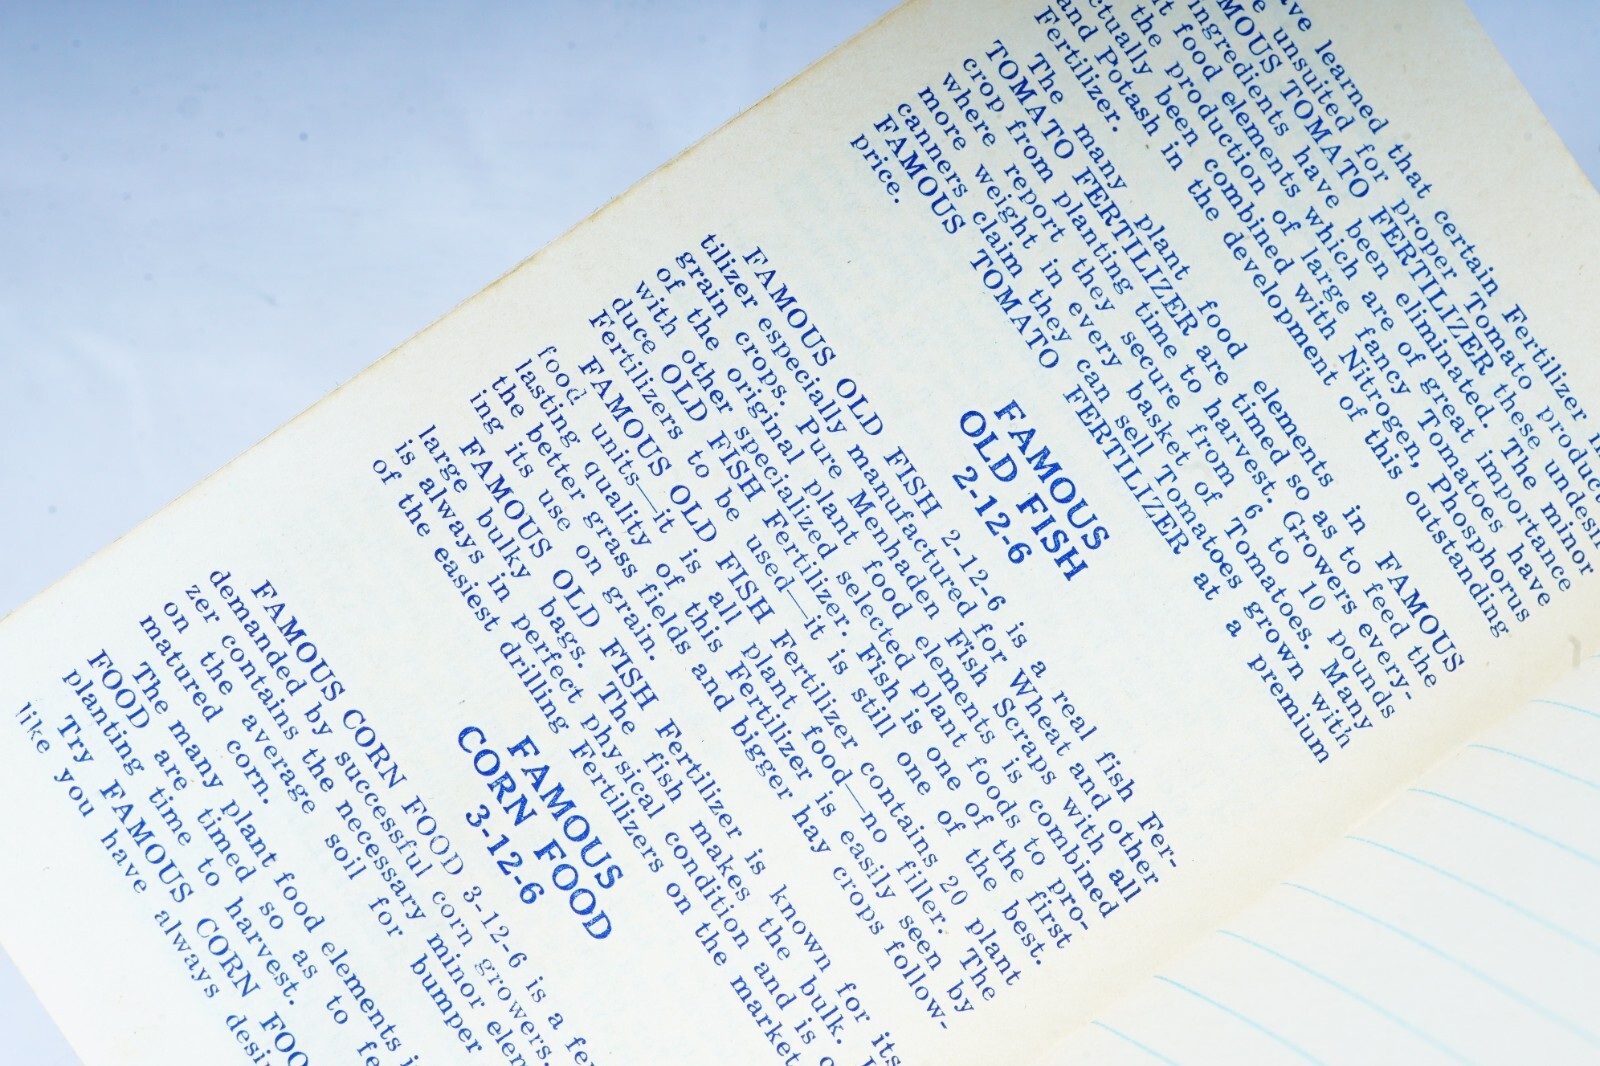 ve learned that certain Fertilizer
e unsuited for proper Tomato product
MOUS TOMATO FERTILIZER these undesi
ingredients have been eliminated. The minor
t food elements which are of great importance
the production of large fancy Tomatoes have
ctually been combined with Nitrogen, Phosphorus
and Potash in the development of this outstanding
Fertilizer.
The many plant food elements in FAMOUS
TOMATO FERTILIZER are timed so as to feed the
crop from planting time to harvest. Growers every-
where report they secure from 6 to 10 pounds
more weight in every basket of Tomatoes. Many
canners claim they can sell Tomatoes grown with
FAMOUS TOMATO FERTILIZER at a premium
price.
FAMOUS
OLD FISH
2-12-6
FAMOUS OLD FISH 2-12-6 is a real fish Fer-
tilizer especially manufactured for Wheat and other
grain crops. Pure Menhaden Fish Scraps with all
of the original plant food elements is combined
with other specialized selected plant foods to pro-
duce OLD FISH Fertilizer. Fish is one of the first
Fertilizers to be used—it is still one of the best.
FAMOUS OLD FISH Fertilizer contains 20 plant
food units—it is all plant food—no filler. The
lasting quality of this Fertilizer is easily seen by
the better grass fields and bigger hay crops follow-
ing its use on grain.
FAMOUS OLD FISH Fertilizer is known for its
large bulky bags. The fish makes the bulk.
is always in perfect physical condition and is
of the easiest drilling Fertilizers on the market
FAMOUS
CORN FOOD
3-12-6
FAMOUS CORN FOOD 3-12-6 is a fer
demanded by successful corn growers.
zer contains the necessary minor elem
on the average soil for bumper
matured corn.
The many plant food elements i
FOOD are timed so as to fe
planting time to harvest.
Try FAMOUS CORN FOO
like you have always desi